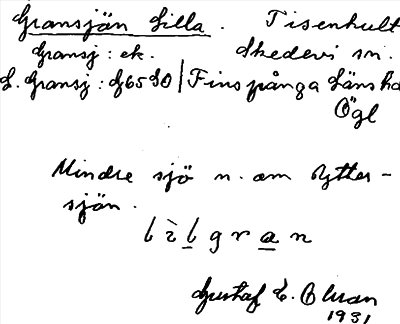 Gransjön Lilla. Tisenhult
Gransj: ek. Skedevi sn.
L. Gransj: G65SO Finspånga Länshd
Ögl
Mindre sjö n. om Ytter-
sjön.
lìlgran
Gustaf E.
1931